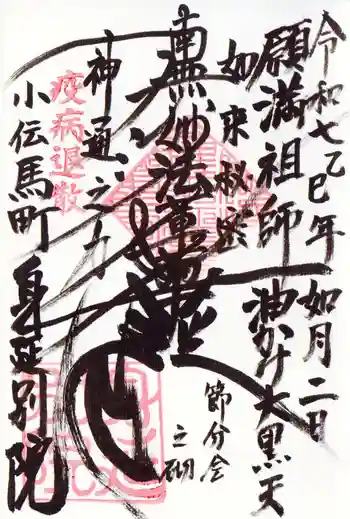 令和七乙巳年 如月二日
願満祖師 油かけ大黒天
如来秘密
節分会
之砌
南無妙法蓮華經
神通之力
疫病退散
小伝馬町 身延別院